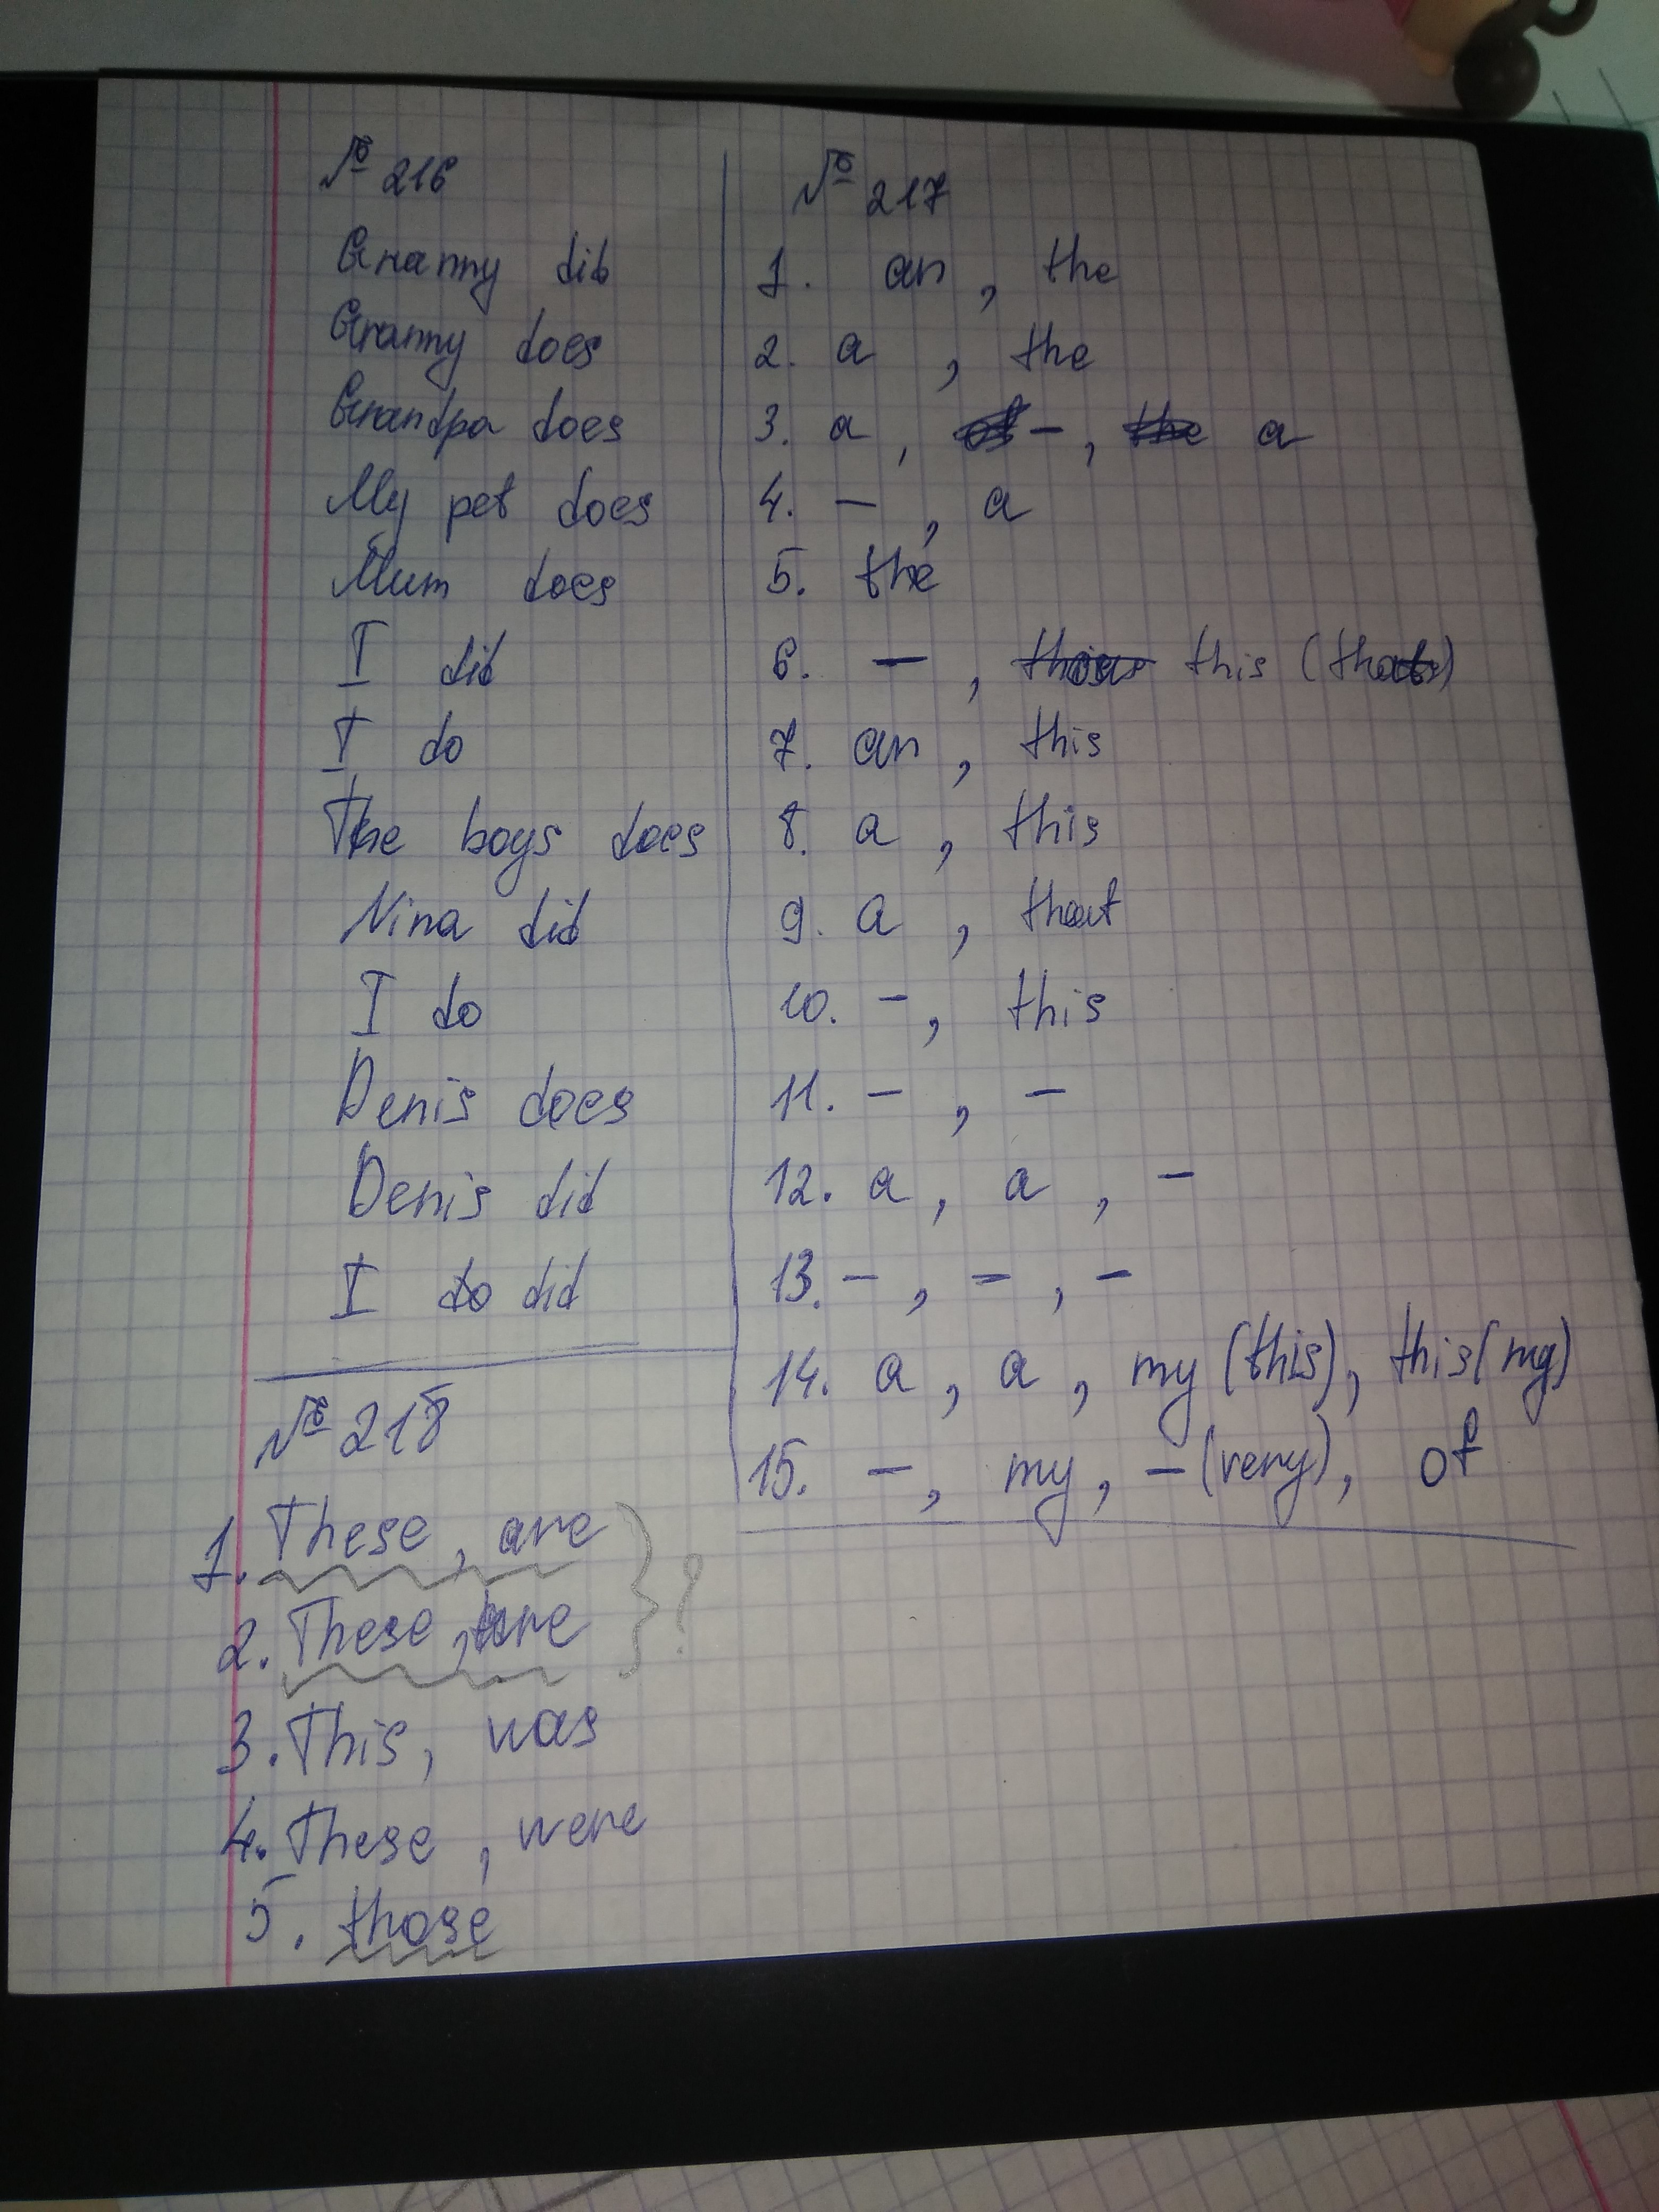 № 216
Granny did
Granny does
Grandpa does
My pet does
Mum does
I did
I do
The boys does
Nina did
I do
Denis does
Denis did
I do did
№ 217
1. an, the
2. a, the
3. a, –, the a
4. –, a
5. the
6. –, this (that)
7. an, this
8. a, this
9. a, that
10. –, this
11. –, –
12. a, a, –
13. –, –, –
14. a, a, my (this), this (my)
15. –, my, – (very), of
№ 218
1. These, are
2. These, are
?
3. This, was
4. These, were
5. those